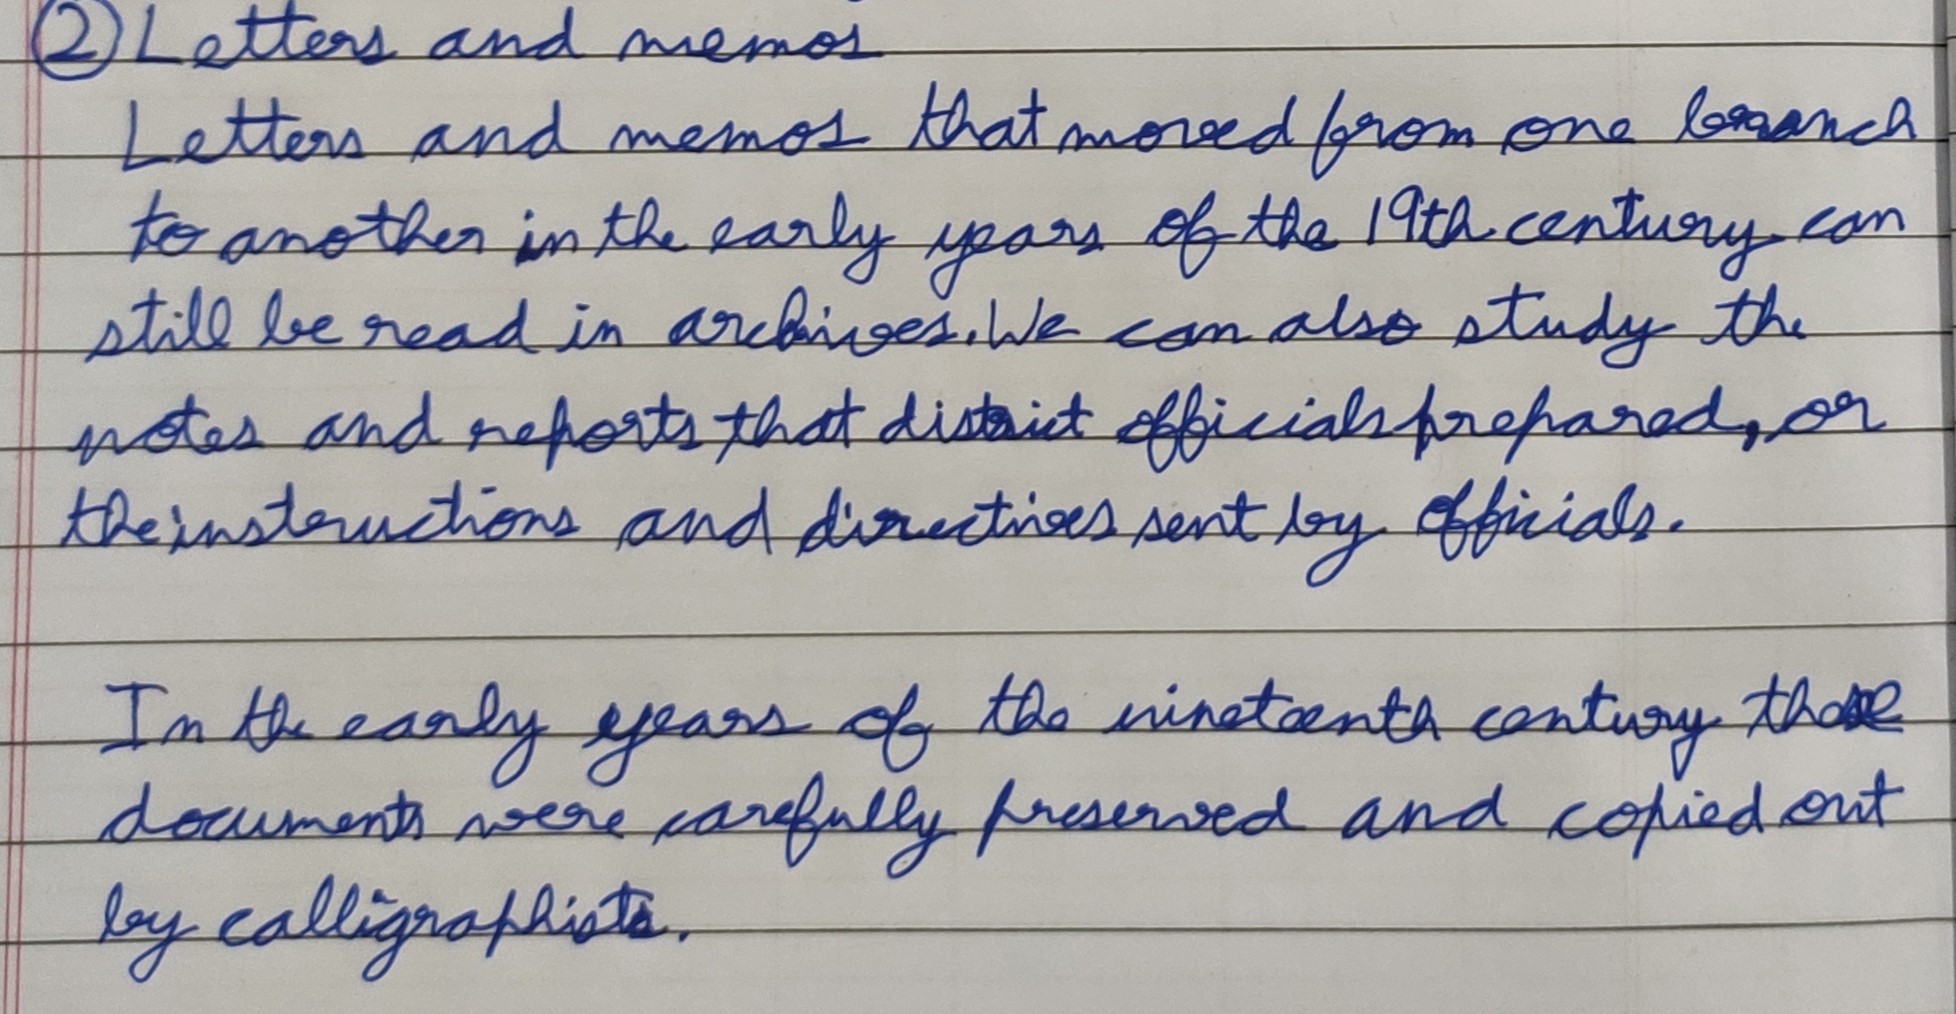 ② Letters and memos
Letters and memos that moved from one branch
to another in the early years of the 19th century can
still be read in archives. We can also study the
notes and reports that district officials prepared, or
the instructions and directives sent by officials.
In the early years of the nineteenth century these
documents were carefully preserved and copied out
by calligraphists.